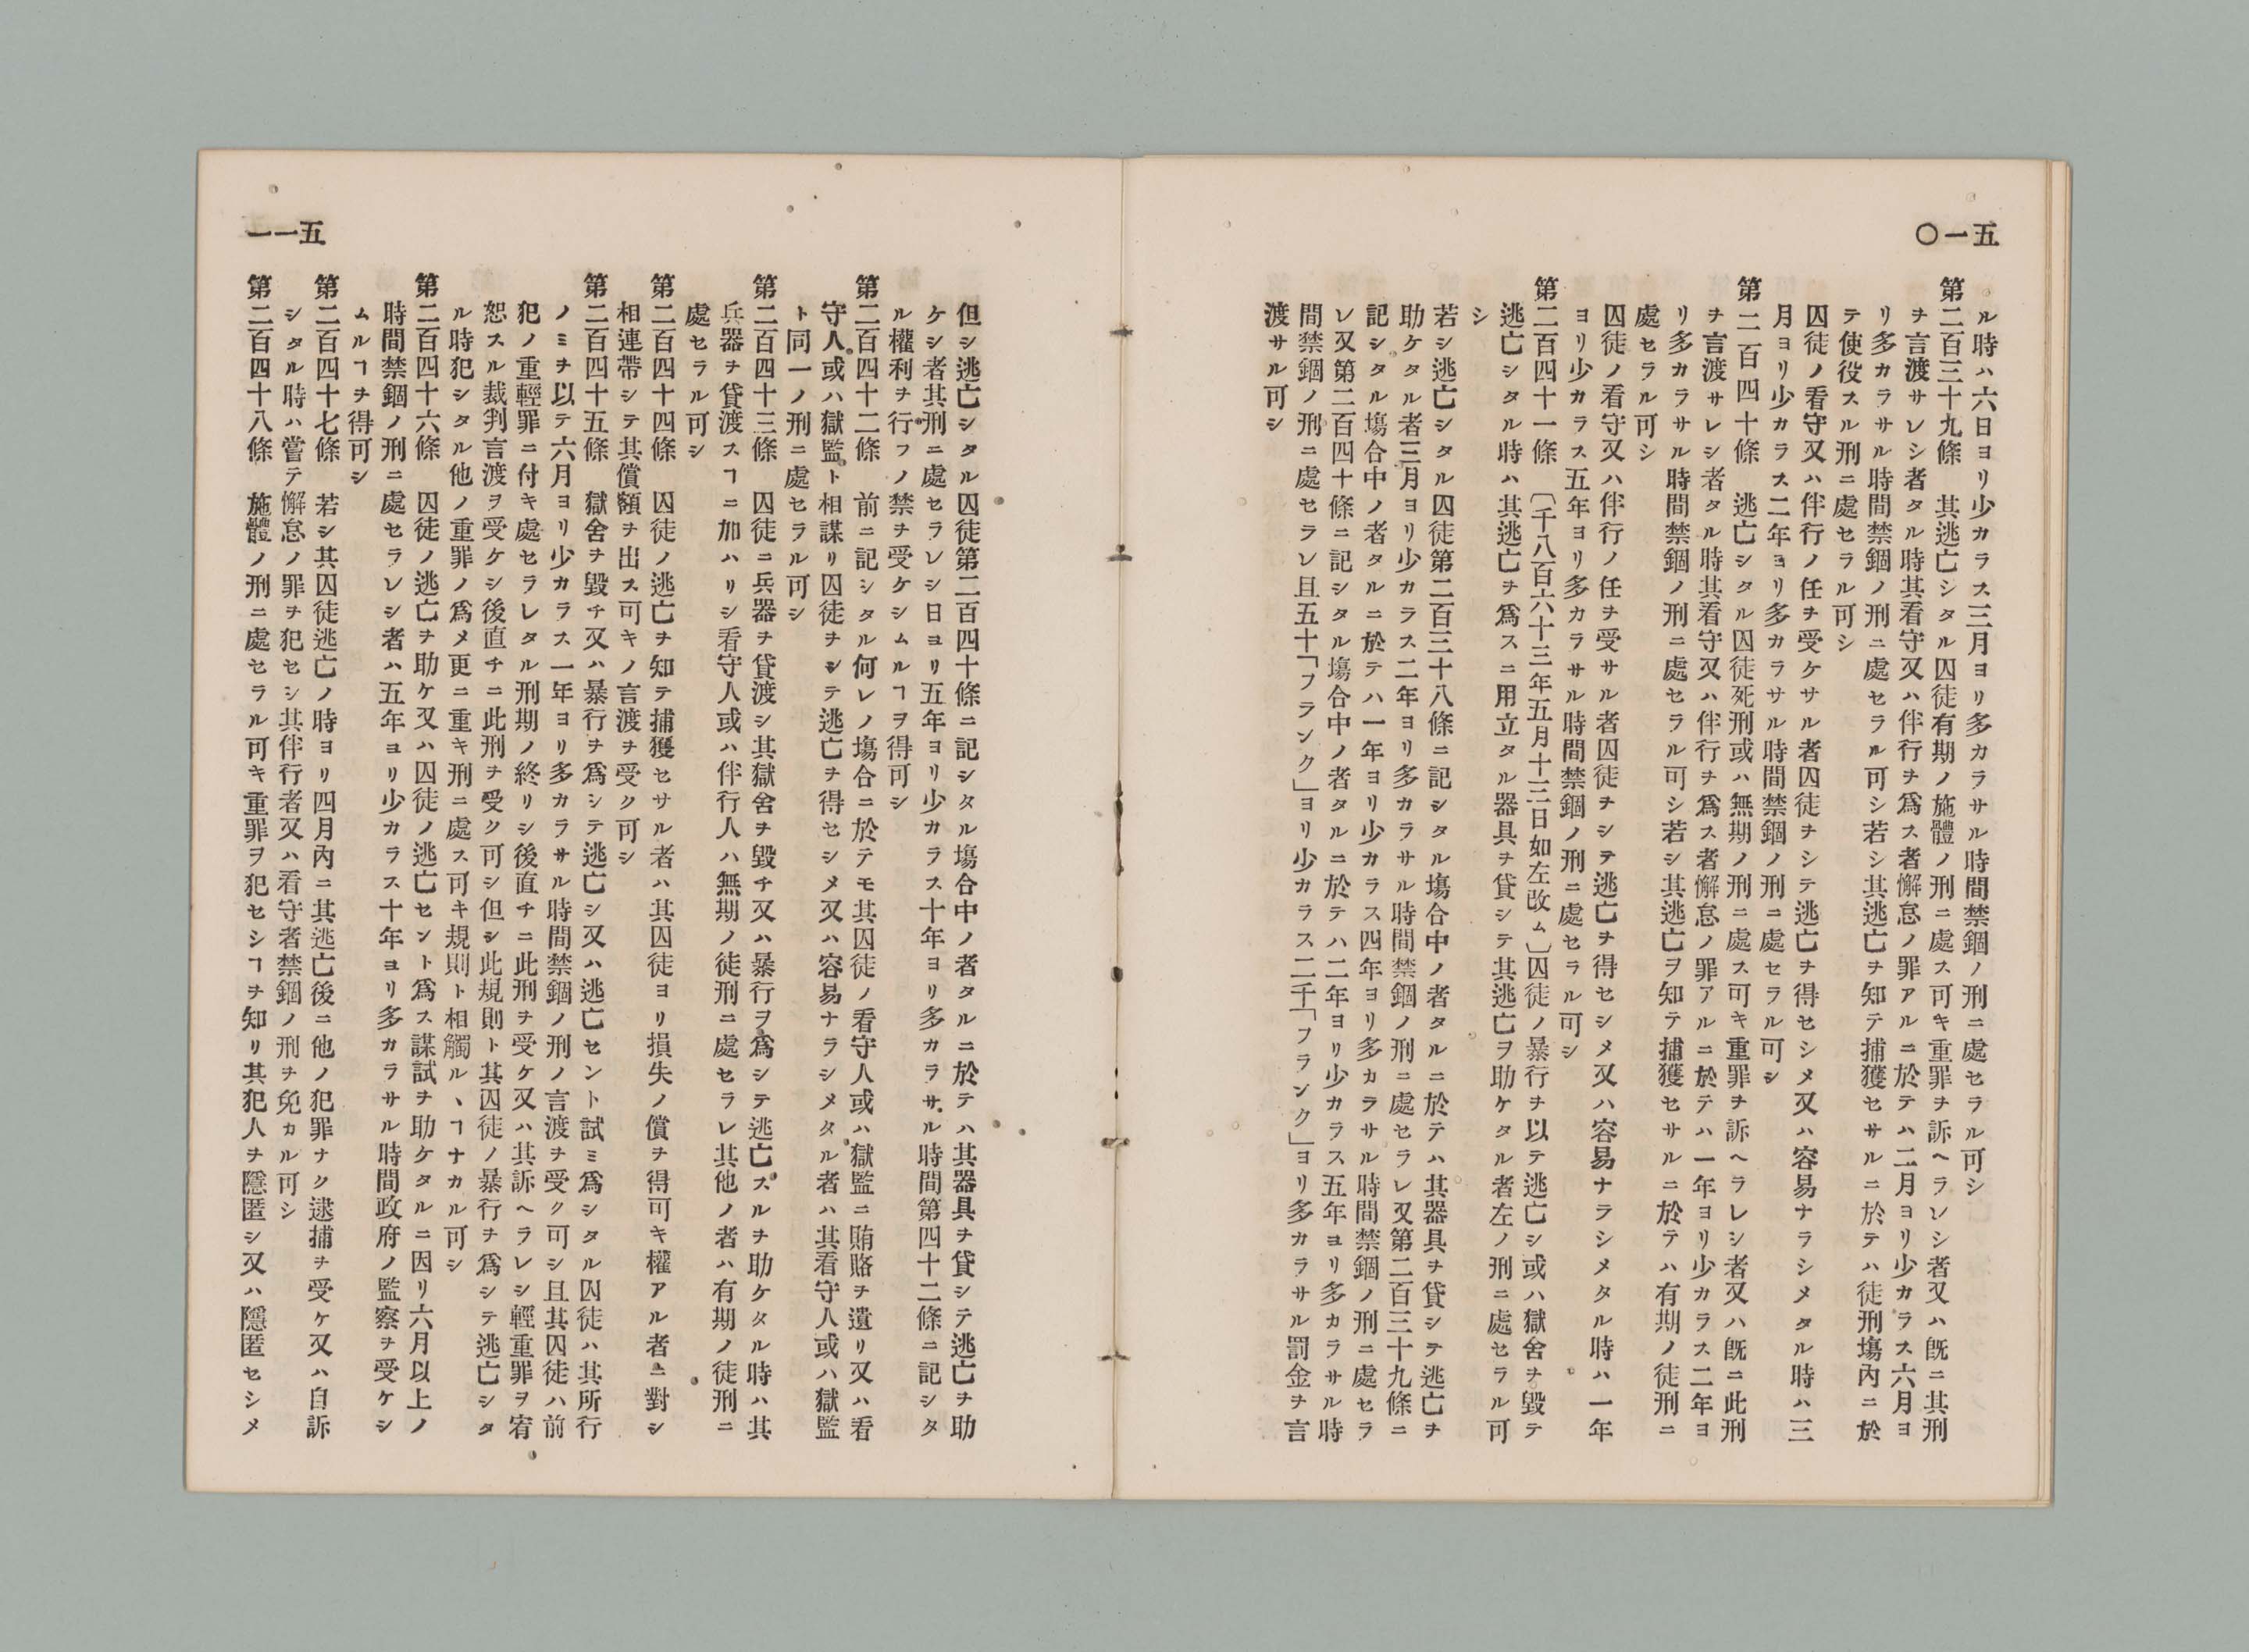 五一〇
ル時ハ六日ヨリ少カラス三月ヨリ多カラサル時間禁錮ノ刑ニ處セラル可シ
第二百三十九條　其逃亡シタル囚徒有期ノ施體ノ刑ニ處ス可キ重罪ヲ訴ヘラレシ者又ハ旣ニ其刑
ヲ言渡サレシ者タル時其看守又ハ伴行ヲ爲ス者懈怠ノ罪アルニ於テハ二月ヨリ少カラス六月ヨ
リ多カラサル時間禁錮ノ刑ニ處セラル可シ若シ其逃亡ヲ知テ捕獲セサルニ於テハ徒刑塲內ニ於
テ使役スル刑ニ處セラル可シ
囚徒ノ看守又ハ伴行ノ任ヲ受ケサル者囚徒ヲシテ逃亡ヲ得セシメ又ハ容易ナラシメタル時ハ三
月ヨリ少カラス二年ヨリ多カラサル時間禁錮ノ刑ニ處セラル可シ
第二百四十條　逃亡シタル囚徒死刑或ハ無期ノ刑ニ處ス可キ重罪ヲ訴ヘラレシ者又ハ旣ニ此刑
ヲ言渡サレシ者タル時其看守又ハ伴行ヲ爲ス者懈怠ノ罪アルニ於テハ一年ヨリ少カラス二年ヨ
リ多カラサル時間禁錮ノ刑ニ處セラル可シ若シ其逃亡ヲ知テ捕獲セサルニ於テハ有期ノ徒刑ニ
處セラル可シ
囚徒ノ看守又ハ伴行ノ任ヲ受サル者囚徒ヲシテ逃亡ヲ得セシメ又ハ容易ナラシメタル時ハ一年
ヨリ少カラス五年ヨリ多カラサル時間禁錮ノ刑ニ處セラル可シ
第二百四十一條　〔千八百六十三年五月十三日如左改ム〕囚徒ノ暴行ヲ以テ逃亡シ或ハ獄舍ヲ毀テ
逃亡シタル時ハ其逃亡ヲ爲スニ用立タル器具ヲ貸シテ其逃亡ヲ助ケタル者左ノ刑ニ處セラル可
シ
若シ逃亡シタル囚徒第二百三十八條ニ記シタル塲合中ノ者タルニ於テハ其器具ヲ貸シテ逃亡ヲ
助ケタル者三月ヨリ少カラス二年ヨリ多カラサル時間禁錮ノ刑ニ處セラレ又第二百三十九條ニ
記シタル塲合中ノ者タルニ於テハ一年ヨリ少カラス四年ヨリ多カラサル時間禁錮ノ刑ニ處セラ
レ又第二百四十條ニ記シタル塲合中ノ者タルニ於テハ二年ヨリ少カラス五年ヨリ多カラサル時
間禁錮ノ刑ニ處セラレ且五十「フランク」ヨリ少カラス二千「フランク」ヨリ多カラサル罰金ヲ言
渡サル可シ
五一一
但シ逃亡シタル囚徒第二百四十條ニ記シタル塲合中ノ者タルニ於テハ其器具ヲ貸シテ逃亡ヲ助
ケシ者其刑ニ處セラレシ日ヨリ五年ヨリ少カラス十年ヨリ多カラサル時間第四十二條ニ記シタ
ル權利ヲ行フノ禁ヲ受ケシムルヿヲ得可シ
第二百四十二條　前ニ記シタル何レノ塲合ニ於テモ其囚徒ノ看守人或ハ獄監ニ賄賂ヲ遺リ又ハ看
守人或ハ獄監ト相謀リ囚徒ヲシテ逃亡ヲ得セシメ又ハ容易ナラシメタル者ハ其看守人或ハ獄監
ト同一ノ刑ニ處セラル可シ
第二百四十三條　囚徒ニ兵器ヲ貸渡シ其獄舍ヲ毀チ又ハ暴行ヲ爲シテ逃亡スルヲ助ケタル時ハ其
兵器ヲ貸渡スヿニ加ハリシ看守人或ハ伴行人ハ無期ノ徒刑ニ處セラレ其他ノ者ハ有期ノ徒刑ニ
處セラル可シ
第二百四十四條　囚徒ノ逃亡ヲ知テ捕獲セサル者ハ其囚徒ヨリ損失ノ償ヲ得可キ權アル者ニ對シ
相連帶シテ其償額ヲ出ス可キノ言渡ヲ受ク可シ
第二百四十五條　獄舍ヲ毀チ又ハ暴行ヲ爲シテ逃亡シ又ハ逃亡セント試ミ爲シタル囚徒ハ其所行
ノミヲ以テ六月ヨリ少カラス一年ヨリ多カラサル時間禁錮ノ刑ノ言渡ヲ受ク可シ且其囚徒ハ前
犯ノ重輕罪ニ付キ處セラレタル刑期ノ終リシ後直チニ此刑ヲ受ケ又ハ其訴ヘラレシ輕重罪ヲ宥
恕スル裁判言渡ヲ受ケシ後直チニ此刑ヲ受ク可シ但シ此規則ト其囚徒ノ暴行ヲ爲シテ逃亡シタ
ル時犯シタル他ノ重罪ノ爲メ更ニ重キ刑ニ處ス可キ規則ト相觸ル丶ヿナカル可シ
第二百四十六條　囚徒ノ逃亡ヲ助ケ又ハ囚徒ノ逃亡セント爲ス謀試ヲ助ケタルニ因リ六月以上ノ
時間禁錮ノ刑ニ處セラレシ者ハ五年ヨリ少カラス十年ヨリ多カラサル時間政府ノ監察ヲ受ケシ
ムルヿヲ得可シ
第二百四十七條　若シ其囚徒逃亡ノ時ヨリ四月內ニ其逃亡後ニ他ノ犯罪ナク逮捕ヲ受ケ又ハ自訴
シタル時ハ嘗テ懈怠ノ罪ヲ犯セシ其伴行者又ハ看守者禁錮ノ刑ヲ免カル可シ
第二百四十八條　施體ノ刑ニ處セラル可キ重罪ヲ犯セシヿヲ知リ其犯人ヲ隱匿シ又ハ隱匿セシメ